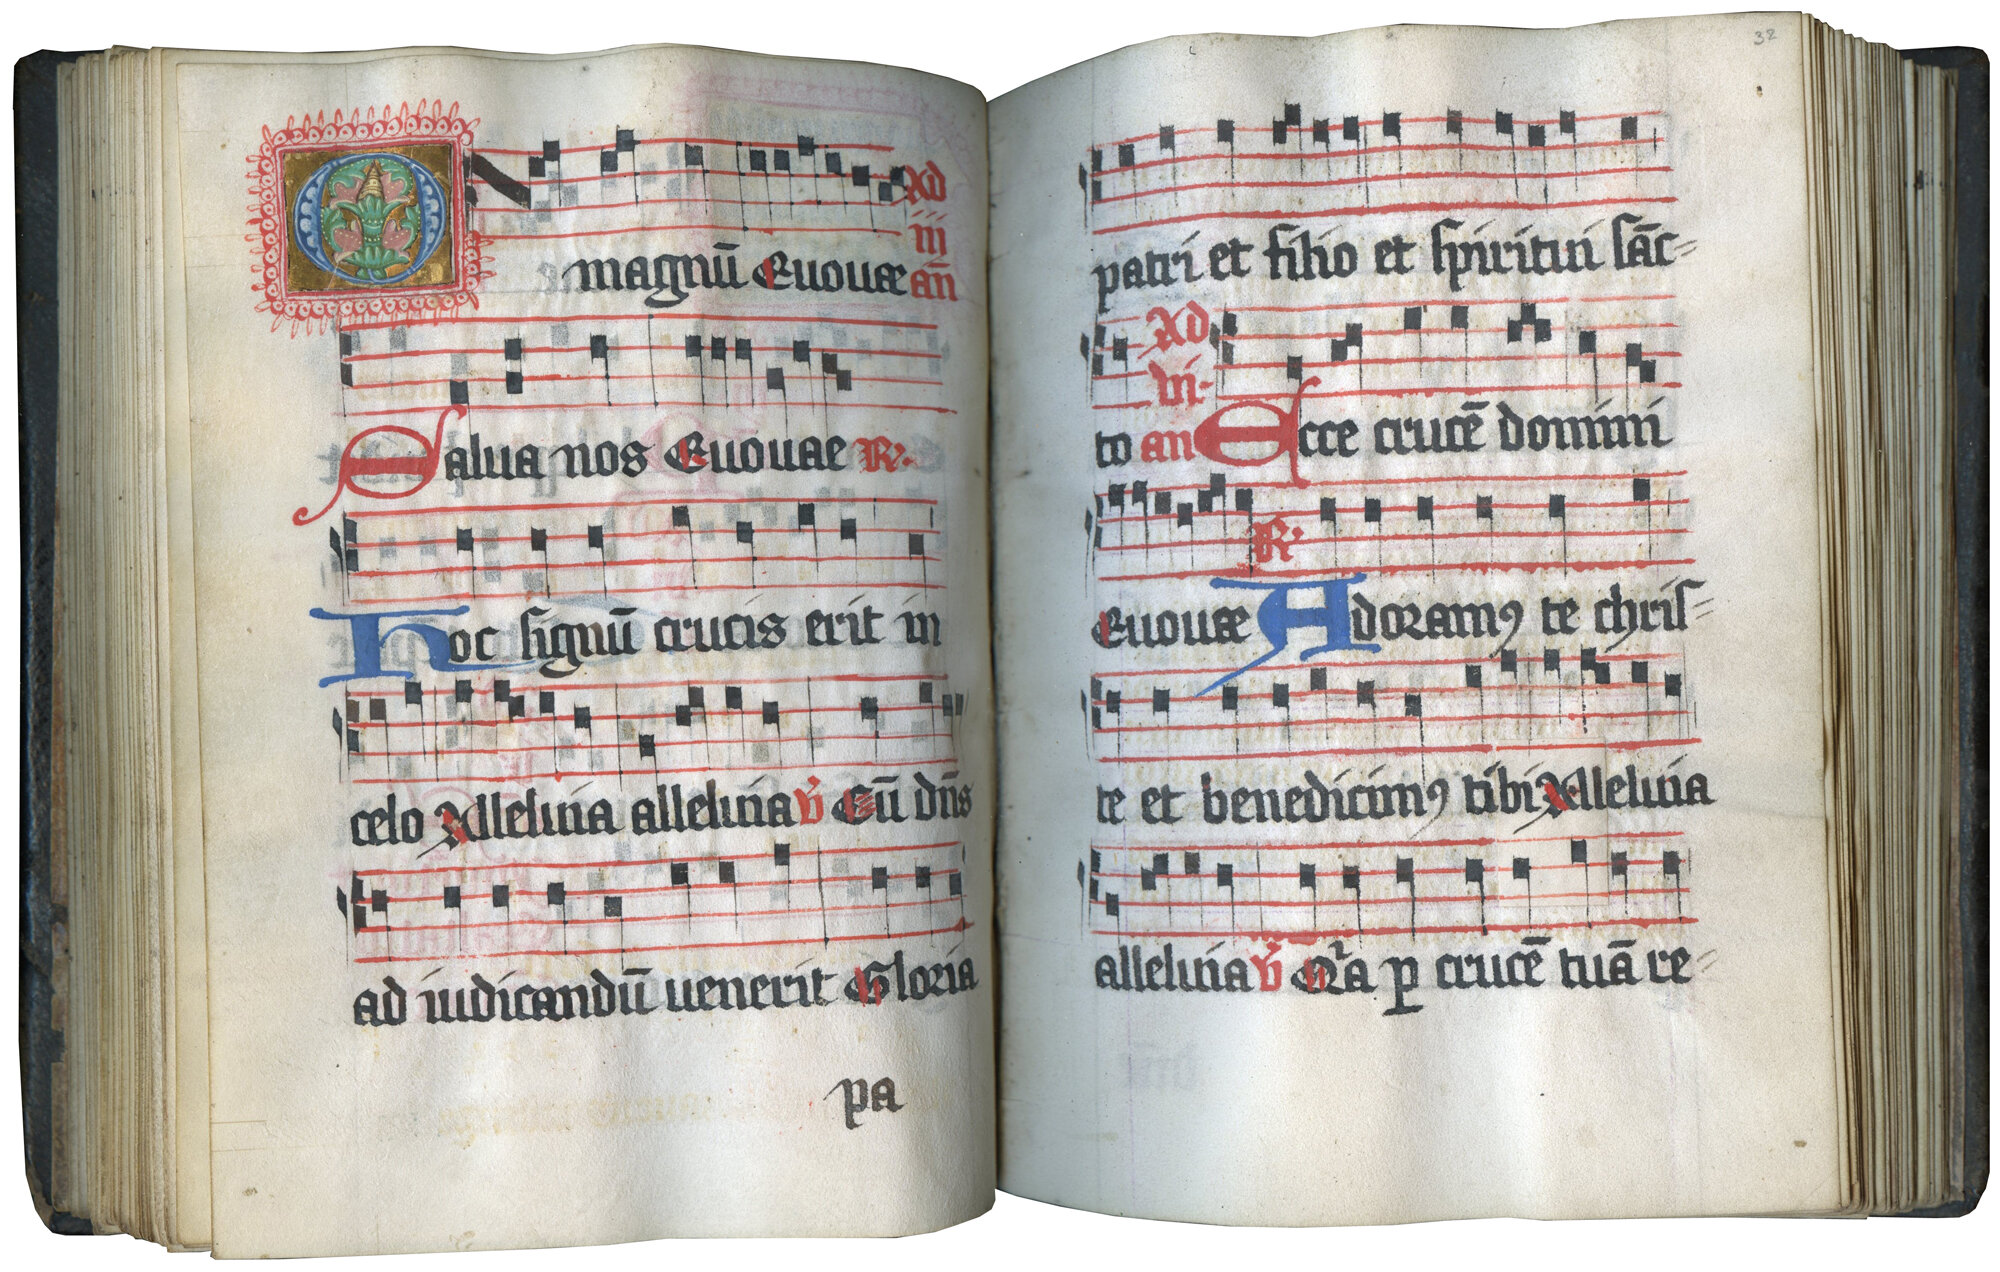 O magnū Euouae
Ad
iii
an̄
Salua nos Euouae R.
Hoc signū crucis erit in
celo Alleluia alleluia v̄ Cū dn̄s
ad iudicandū uenerit Gloria
pa
32
patri et filio et spiritui sāc=
Ad
vi.
to an Ecce crucē domini
R.
Euouae Adoramꝰ te chris=
te et benedicimꝰ tibi Alleluia
alleluia v̄ Qr̄a ꝑ crucē tuā re=